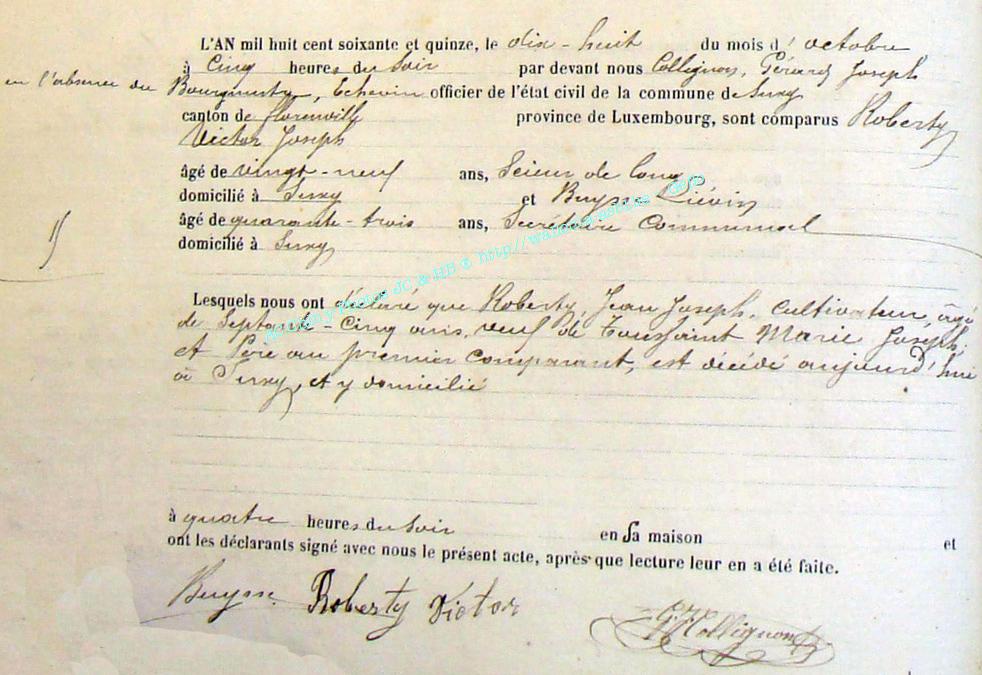 L'AN mil huit cent soixante et quinze, le dix-huit du mois d'octobre
à Cinq heures du Soir par devant nous Collignon, Gérard Joseph
en l'absence du Bourgmestre, Echevin officier de l'état civil de la commune de Suxy
canton de florenville province de Luxembourg, sont comparus Roberty
Victor Joseph
âgé de vingt-neuf ans, Scieur de long
domicilié à Suxy et Buysse Liévin
âgé de quarante-trois ans, Secrétaire Communal
domicilié à Suxy
Lesquels nous ont déclaré que Roberty, Jean Joseph, cultivateur, âgé
de Septante-Cinq ans, veuf de Toussaint Marie Joseph,
et Père au premier comparant, est décédé aujourd'hui
à Suxy, et y domicilié
à quatre heures du Soir en Sa maison et
ont les déclarants signé avec nous le présent acte, après que lecture leur en a été faite.
Buysse Roberty Victor Collignon